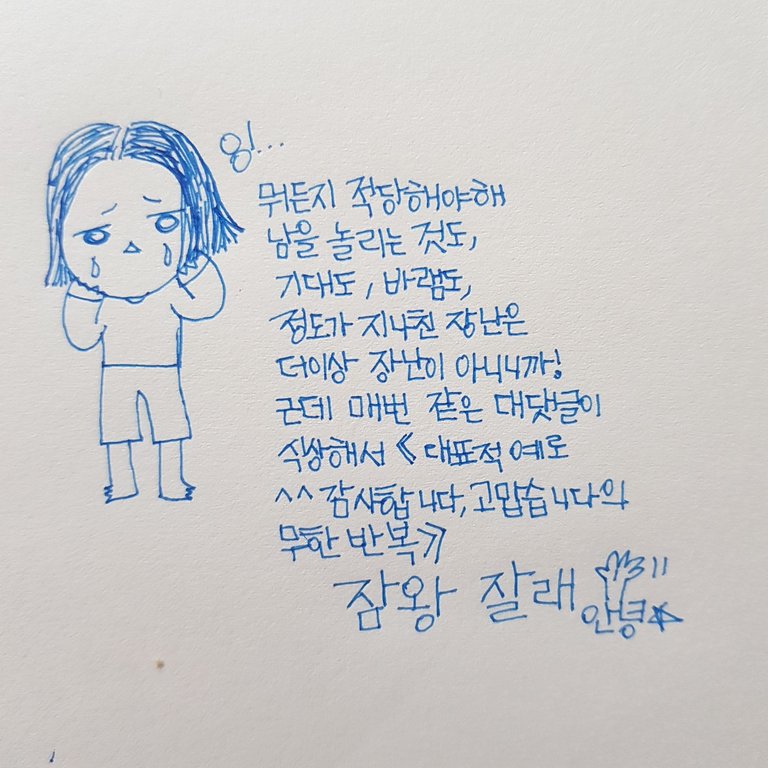 잉...
뭐든지 적당해야해
남을 놀리는 것도,
기대도, 바램도,
정도가 지나친 장난은
더이상 장난이 아니니까!
근데 매번 같은 대댓글이
식상해서 《 대표적 예로
^^ 감사합니다, 고맙습니다의
무한 반복》
잠왕 잘래
안녕☆